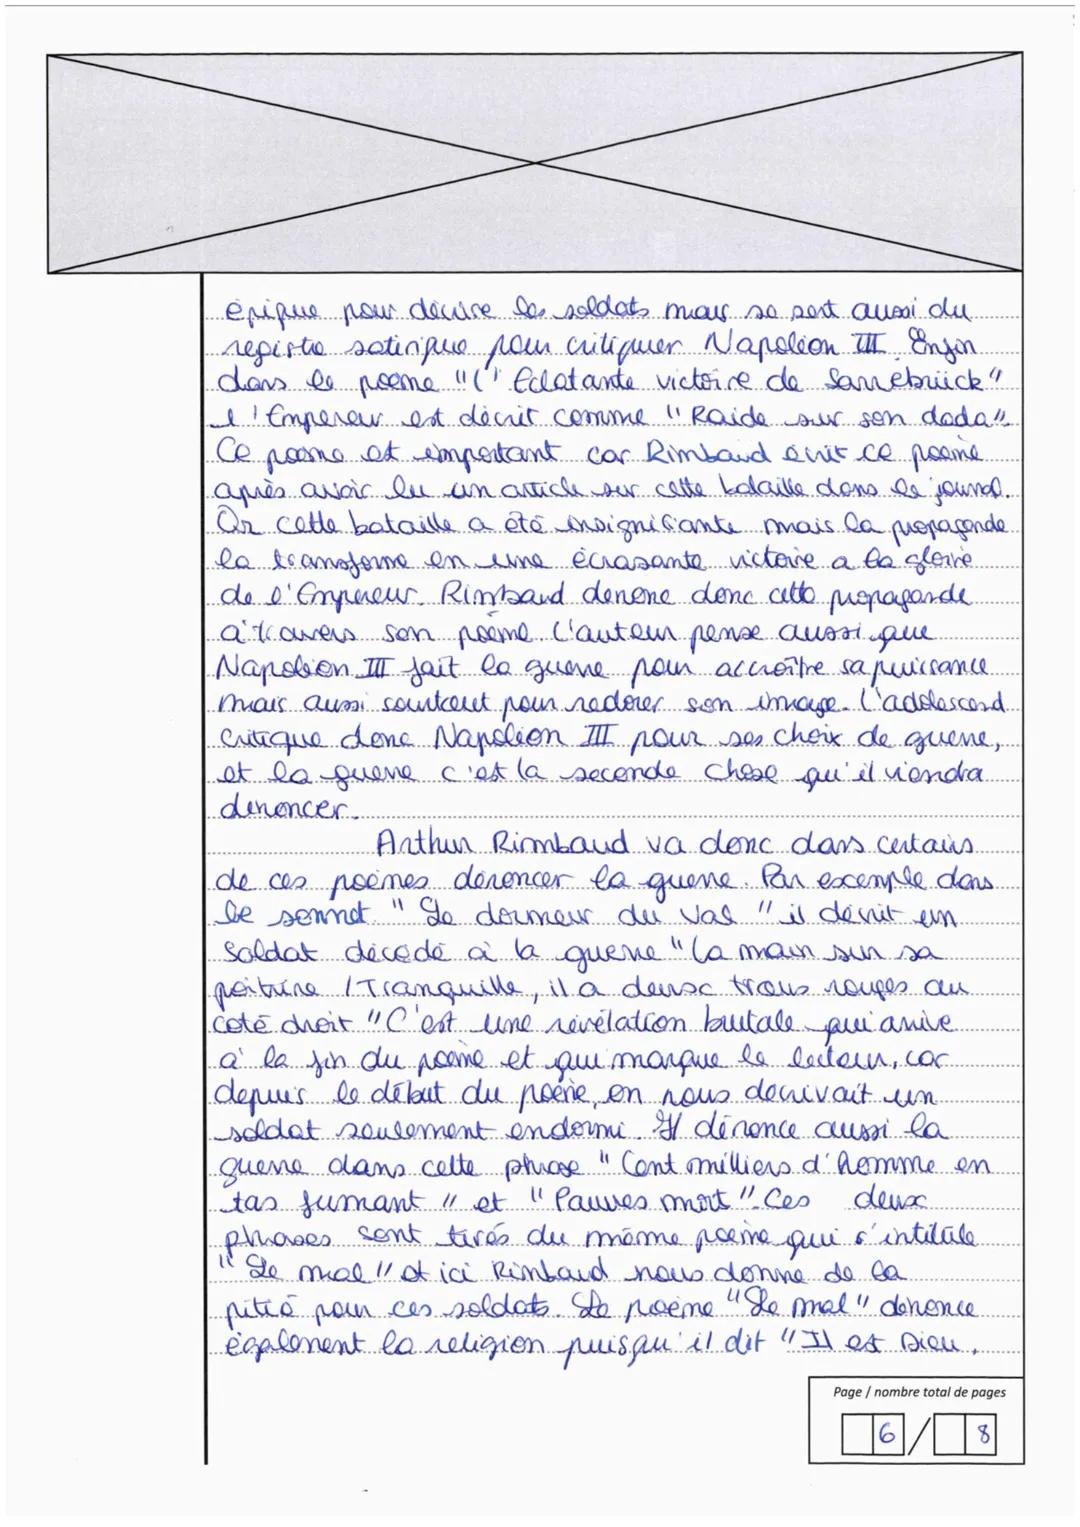 épique pour décrire les soldats mais se sert aussi du
registre satirique pour critiquer Napoléon III. Enfin
dans le poème "L'Eclatante victoire de Sarrebrück"
l'Empereur est décrit comme "Raide sur son dada".
Ce poème est important car Rimbaud écrit ce poème
après avoir lu un article sur cette bataille dans le journal.
Or cette bataille a été insignifiante mais la propagande
la transforme en une écrasante victoire a la gloire
de l'Empereur. Rimbaud denone donc cette propagande
à travers son poème. L'auteur pense aussi que
Napoléon III fait la guerre pour accroître sa puissance
mais aussi surtout pour redorer son image. L'adolescend
critique donc Napoléon III pour ses choix de guerre,
et la guerre c'est la seconde chose qu'il viendra
dénoncer.
Arthur Rimbaud va donc dans certains
de ces poèmes dénoncer la guerre. Par excemple dans
le sonnet "Le dormeur du Val" il décrit un
soldat décédé à la guerre "La main sur sa
poitrine / Tranquille, il a deux trous rouges au
coté droit" C'est une révélation brutale qui arrive
à la fin du poème et qui marque le lecteur, car
depuis le début du poème, on nous decrivait un
soldat seulement endormi. Il dénonce aussi la
guerre dans cette phrase "Cent milliers d'homme en
tas fumant" et "Pauvres mort". Ces deux
phrases sont tirés du même poème qui s'intitule
"Le mal" et ici Rimbaud nous donne de la
pitié pour ces soldats. Le poème "Le mal" dénonce
également la religion puisqu'il dit "Il est Dieu,
Page / nombre total de pages
6 / 8